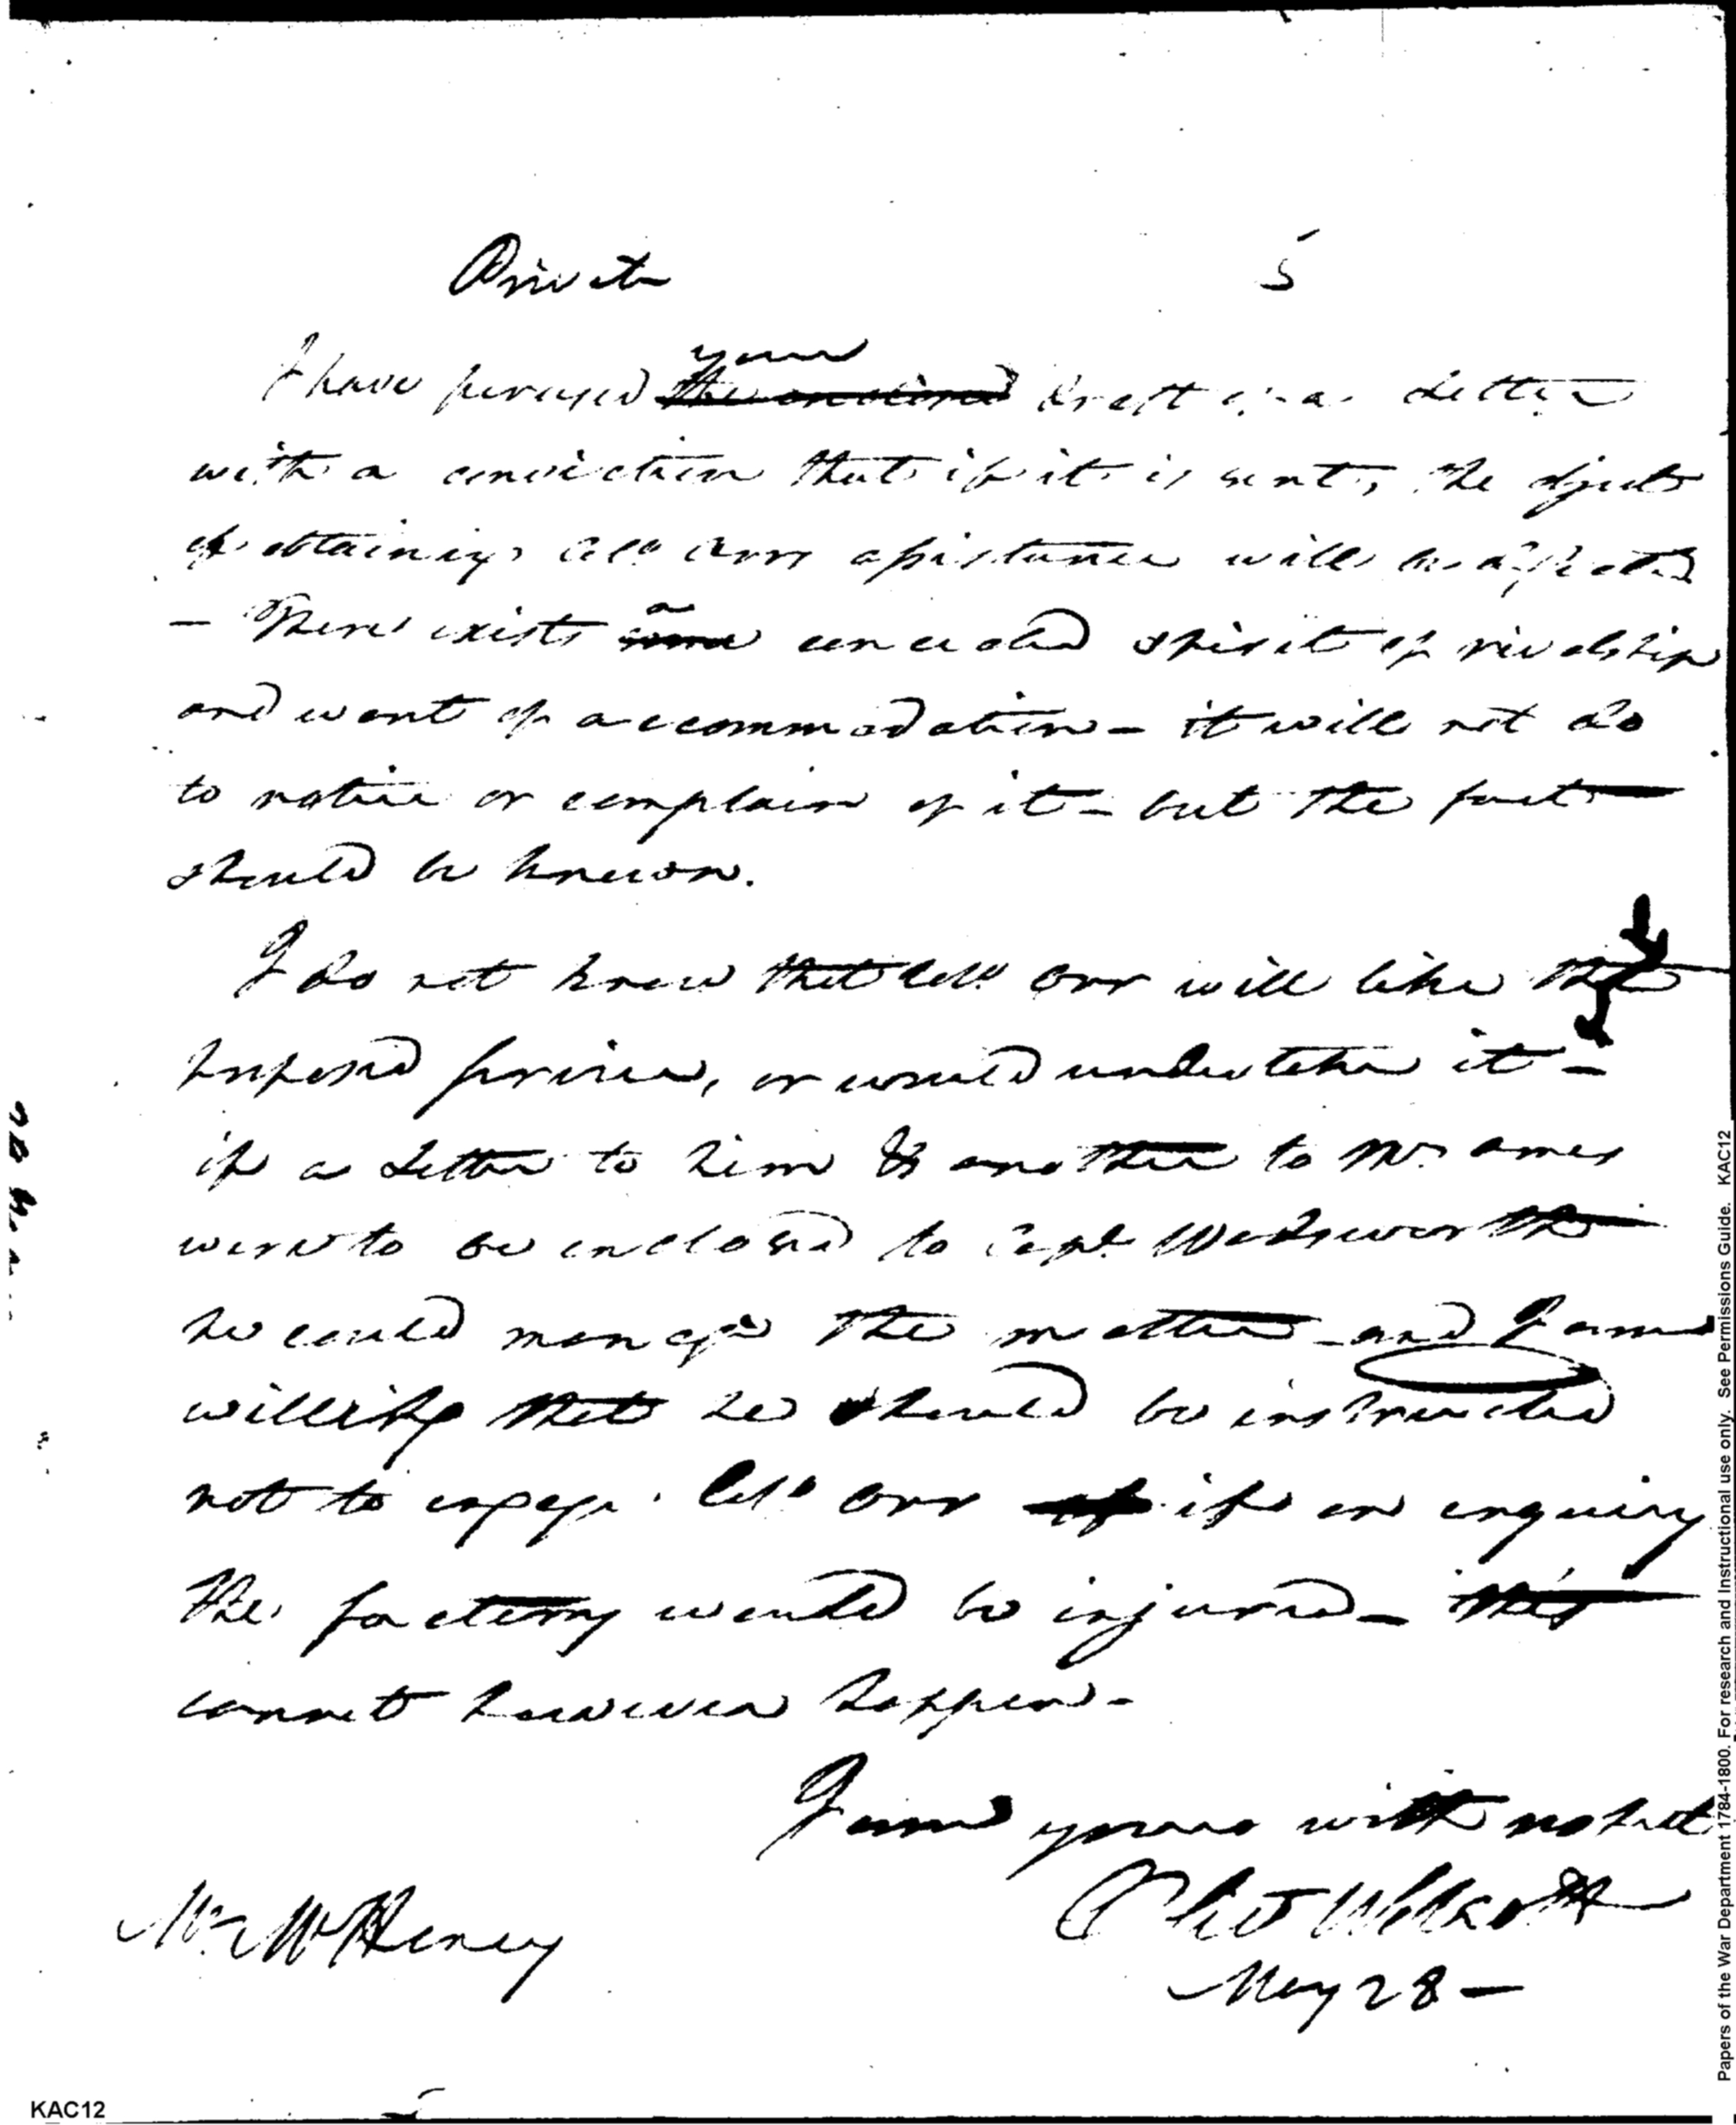 Private 5
your
I have perused the enclosed draft of a Letter
with a conviction that if it is sent, the object
of obtaining Collo Orrs assistance will be defeated
a
— There exists some concealed spirit of rivalship
and want of accommodation – it will not do
to notice or complain of it – but the fact
should be known.
I do not know that Collo Orr will like the
proposed service, or would undertake it –
if a Letter to him & another to Mr. Ames
were to be inclosed to Capt. Wadsworth
he could manage the matter – and I am
willing that he should be instructed
not to engage Collo Orr if if on enquiry
the factory would be injured – this
cannot however happen –
I am yours with respect
Oliv Wolcott
Mr McHenry
May 28 –
KAC12
Papers of the War Department 1784-1800. For research and Instructional use only. See Permissions Guide. KAC12